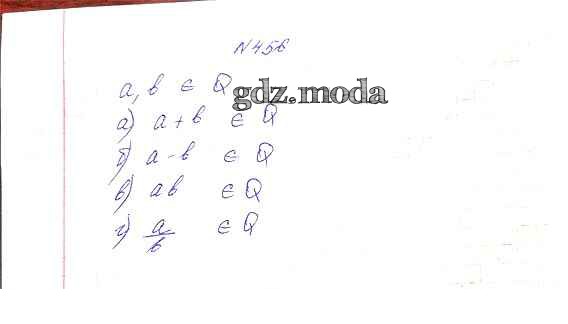 N 456
a, b ∈ Q
gdz.moda
а) a + b ∈ Q
б) a - b ∈ Q
в) ab ∈ Q
г) a/b ∈ Q